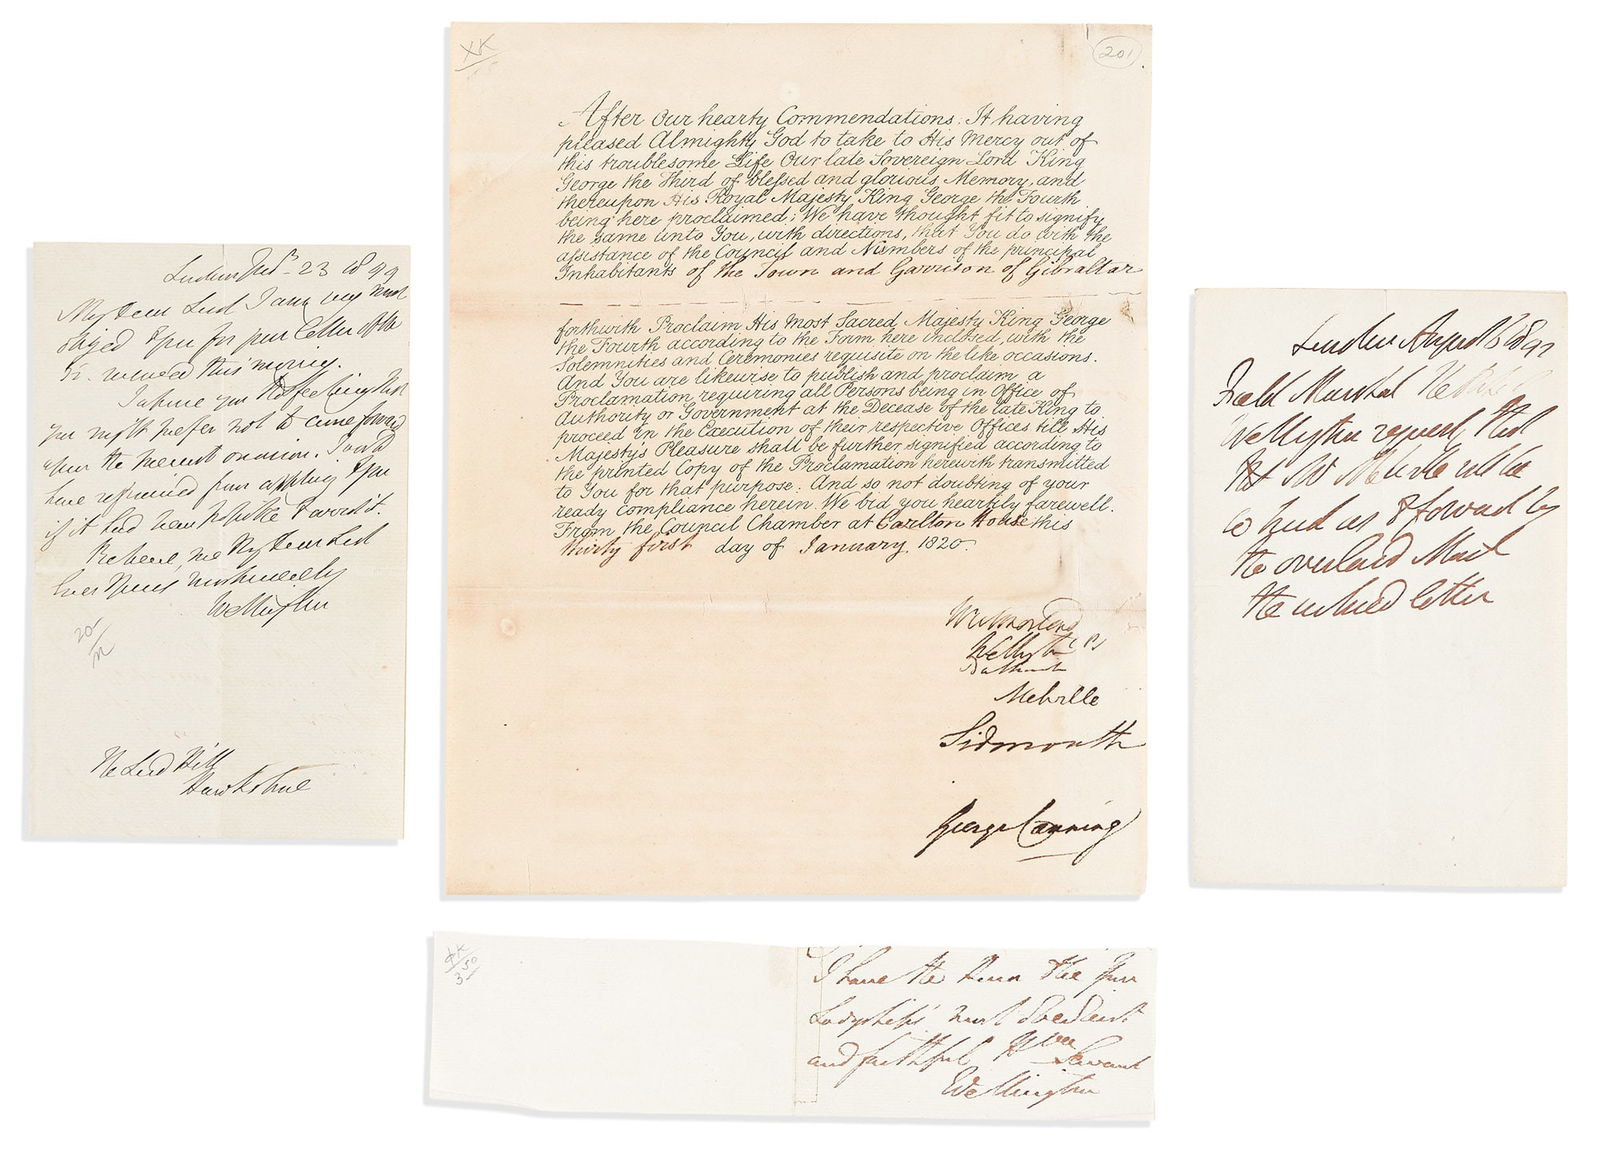 London
23
My Dear Lord I am very much
obliged to you for your Letter of the
received this morning.
you might prefer not to come forward
upon the present occasion. I would
have refrained from applying to you
if it had been possible to avoid it.
Believe me My Dear Lord
Ever Yours most sincerely
Wellington
20/
The Lord Hill
Hawkstone
XK
201
After Our hearty Commendations. It having
pleased Almighty God to take to His Mercy out of
this troublesome Life Our late Sovereign Lord King
George the Third of blessed and glorious Memory, and
thereupon His Royal Majesty King George the Fourth
being here proclaimed; We have thought fit to signify
the same unto You, with directions, that You do with the
assistance of the Council and Numbers of the principal
Inhabitants of the Town and Garrison of Gibraltar
forthwith Proclaim His Most Sacred Majesty King George
the Fourth according to the Form here inclosed, with the
Solemnities and Ceremonies requisite on the like occasions.
And You are likewise to publish and proclaim a
Proclamation requiring all Persons being in Office of
Authority or Government at the Decease of the late King to
proceed in the Execution of their respective Offices till His
Majesty's Pleasure shall be further signified according to
the printed Copy of the Proclamation herewith transmitted
to You for that purpose. And so not doubting of your
ready Compliance herein. We bid you heartily farewell.
From the Council Chamber at Carlton House this
thirty first day of January, 1820.
Westmorland
Wellington
Bathurst
Melville
Sidmouth
George Canning
London August
Field Marshal The Duke of
Wellington requests that
Melville will be
so kind as to forward by
the overland Mail
the inclosed letter
XK
350
I have the honor to be Your
Ladyship's most obedient
and faithful Hble Servant
Wellington